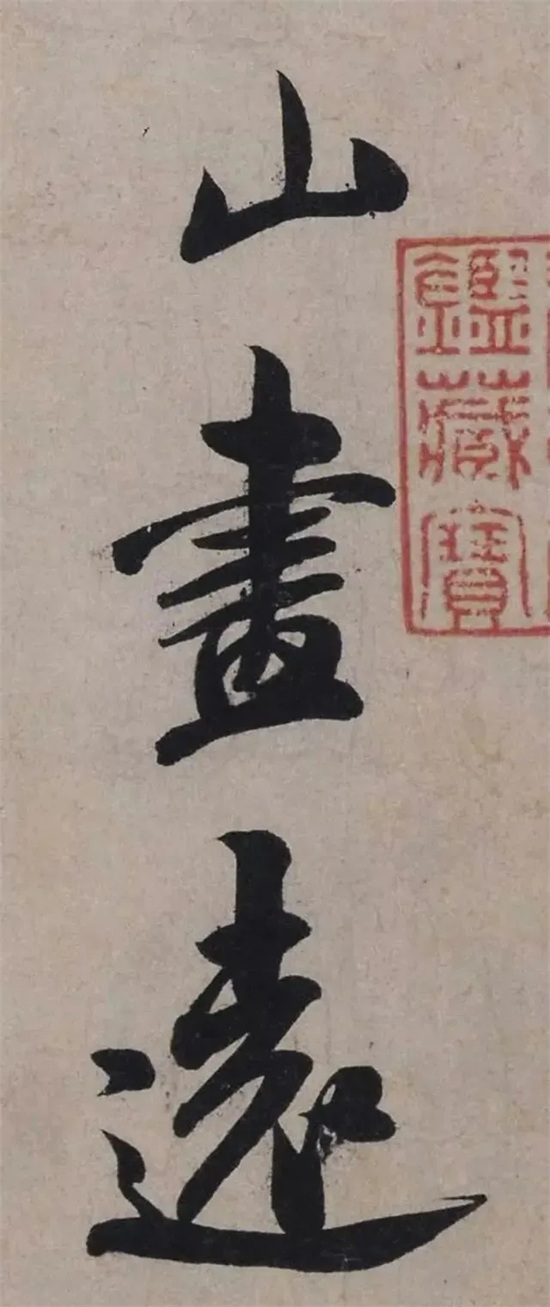 山畫遠
鑑藏寶